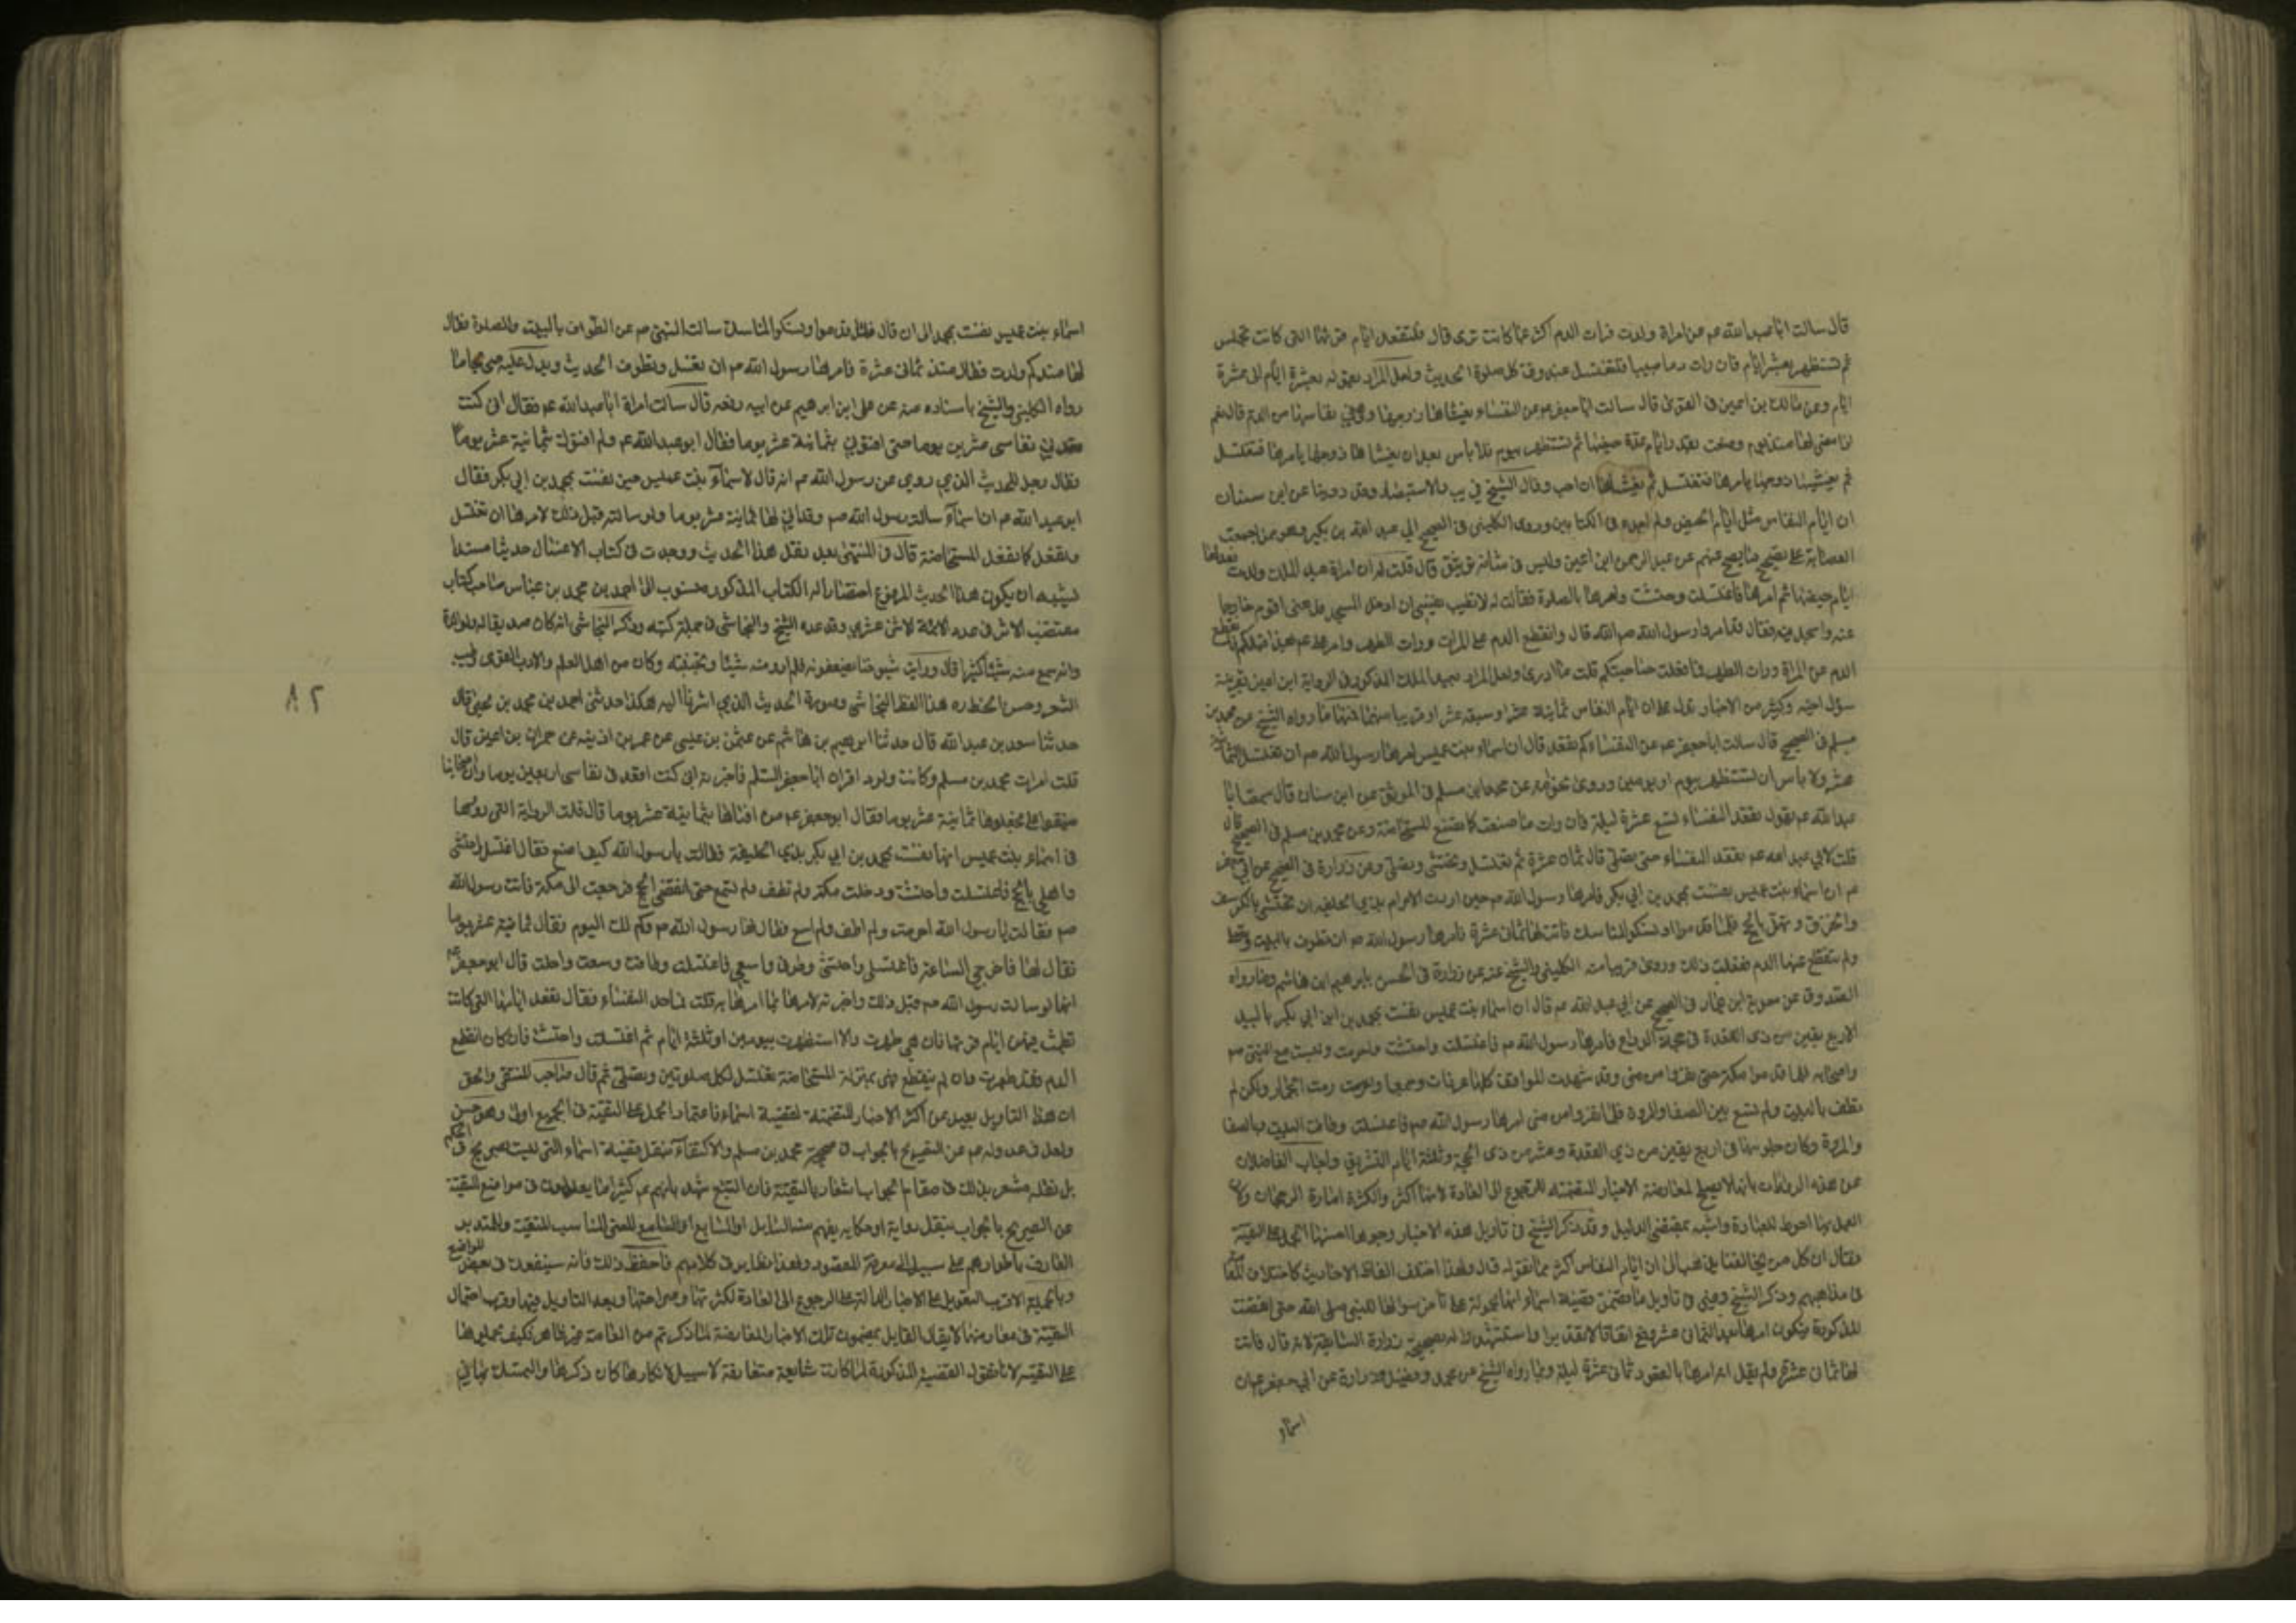 قال سالت ابا عبد الله عم عن امراة ولدت فرات الدم اكثر مما كانت ترى قال فلتقعد ايام قرئها التى كانت تجلس
ثم تستظهر بعشرة ايام فان رات دما صبيبا فلتغتسل عند وقت كل صلوة الحديث ولعل المراد بعشرة ايام الى عشرة
ايام وعن مالك بن اعين فى القوى قال سالت ابا جعفر عم عن النفساء يغشاها زوجها وهى فى نفاسها من الدم قال نعم
اذا مضى لها منذ يوم وضعت بقدر ايام عدة حيضها ثم تستظهر بيوم فلا باس بعد ان يغشاها زوجها يامرها فتغتسل
ثم يغشيها زوجها يامرها فتغتسل ثم يغشاها ان احب وقال الشيخ فى يب والاستبصار وقد روينا عن ابن سنان
ان ايام النفاس مثل ايام الحيض ولم اجده فى الكتابين وروى الكلينى فى الصحيح الى عبد الله بن بكير وهو ممن اجمعت
العصابة على تصحيح ما يصح عنهم عن عبد الرحمن ابن اعين وليس فى شانه توثيق قال قلت له ان امراة عبد الملك ولدت فعد لها
ايام حيضها ثم امرها فاغتسلت واحتشت وامرها بالصلوة فقالت له لا تطيب نفسى ان ادخل المسجد فدعنى اقوم خارجا
عنه واسجد فيه فقال قد امر بذا رسول الله صم قال وانقطع الدم على المراة ورات الطهر وامر على عم بهذا قبلكم فانقطع
الدم عن المراة ورات الطهر فما فعلت صاحبتكم قلت ما ادرى ولعل المراد بعبد الملك المذكور فى الرواية ابن اعين بقرينة
سؤل اخيه وكثير من الاخبار تدل على ان ايام النفاس ثمانية عشر او سبعة عشر او قريبا منهما فمنها ما رواه الشيخ عن محمد بن
مسلم فى الصحيح قال سالت ابا جعفر عم عن النفساء كم تقعد قال ان اسماء بنت عميس امرها رسول الله صم ان تغتسل لثمان
عشرة ولا باس ان تستظهر بيوم او يومين وروى نحوا منه عن محمد ابن مسلم فى الموثق عن ابن سنان قال سمعت ابا
عبد الله عم يقول تقعد النفساء تسع عشرة ليلة فان رات دما صنعت كما تصنع المستحاضة وعن محمد بن مسلم فى الصحيح قال
قلت لابى عبد الله عم تقعد النفساء حتى تصلى قال ثمان عشرة ثم تغتسل وتحتشى وتصلى وعن زرارة فى الصحيح عن ابى جعفر
عم ان اسماء بنت عميس نفست بمحمد بن ابى بكر فامرها رسول الله صم حين ارادت الاحرام بذى الحليفة ان تحتشى بالكرسف
والخرق وتهل بالحج فلما قدموا ونسكوا المناسك فاتت لها ثمان عشرة فامرها رسول الله صم ان تطوف بالبيت وتصلى
ولم ينقطع عنها الدم ففعلت ذلك وروى قريبا منه الكلينى والشيخ عنه عن زرارة فى الحسن بابرهيم ابن هاشم وما رواه
الصدوق عن معوية ابن عمار فى الصحيح عن ابى عبد الله عم قال ان اسماء بنت عميس نفست بمحمد بن ابى بكر بالبيداء
لاربع بقين من ذى القعدة فى حجة الوداع فامرها رسول الله صم فاغتسلت واحتشت واحرمت ولبت مع النبى صم
واصحابه فلما قدموا مكة لم تطهر حتى نفروا من منى وقد شهدت المواقف كلها عرفات وجمعا ورمت الجمار ولكن لم
تطف بالبيت ولم تسع بين الصفا والمروة فلما نفروا من منى امرها رسول الله صم فاغتسلت وطافت بالبيت وبالصفا
والمروة وكان جلوسها فى اربع بقين من ذى القعدة وعشر من ذى الحجة وثلثة ايام التشريق واجاب الفاضلان
عن هذه الروايات بانها لا تصلح لمعارضة الاخبار المتضمنة للرجوع الى العادة لانها اكثر والكثرة امارة الرجحان ولان
العمل بها احوط للعبادة واشبه بمقتضى الدليل وقد ذكر الشيخ فى تاويل هذه الاخبار وجوها احسنها الحمل على التقية
فقال ان كل من يخالفنا يذهب الى ان ايام النفاس اكثر مما نقوله قال ولهذا اختلف الفاظ الاحاديث كاختلاف العامة
فى مذاهبهم وذكر الشيخ وغيره فى تاويل ما تضمن قضية اسماء انها محمولة على تاخر سوالها للنبى صلى الله حتى انقضت
المدة المذكورة فيكون امرها بعد الثمانى عشر وقع اتفاقا لا تقديرا واستشهد له بصحيحة زرارة السابقة لانه قال فاتت
لها ثمان عشرة ولم يقل امرها بالقعود ثمانى عشرة ليلة وبما رواه الشيخ عن محمد وفضيل وزرارة عن ابى جعفر عم ان
اسماء
اسماء بنت عميس نفست بمحمد الى ان قال فلما قدموا ونسكوا المناسك سالت النبى صم عن الطواف بالبيت والصلوة فقال
لها منذ كم ولدت فقالت منذ ثمانى عشرة فامرها رسول الله صم ان تغتسل وتطوف الحديث ويدل عليه صريحا ما
رواه الكلينى والشيخ باسناده عنه عن على ابن ابرهيم عن ابيه رفعه قال سالت امراة ابا عبد الله عم فقالت انى كنت
اقعد فى نفاسى عشرين يوما حتى افتونى بثمانية عشر يوما فقال ابو عبد الله عم ولم افتوك بثمانية عشر يوما
فقال رجل للحديث الذى روى عن رسول الله صم انه قال لاسماء بنت عميس حين نفست بمحمد بن ابى بكر فقال
ابو عبد الله عم ان اسماء سالت رسول الله صم وقد اتى لها ثمانية عشر يوما ولو سالته قبل ذلك لامرها ان تغتسل
وتفعل كما تفعل المستحاضة قال فى المنتهى بعد نقل هذا الحديث ووجدت فى كتاب الاغسال حديثا مسندا
يشبه ان يكون هذا الحديث المرفوع اختصارا له الكتاب المذكور منسوب الى احمد بن محمد بن عياش صاحب كتاب
مقتضب الاثر فى عدد الائمة الاثنى عشر وقد عده الشيخ والنجاشى فى جملة كتبه وذكر النجاشى انه كان صديقا له ولوالده
وانه سمع منه شيئا كثيرا قال ورايت شيوخنا يضعفونه فلم ارو عنه شيئا وتجنبته وكان من اهل العلم والادب القوى وطيب
الشعر وحسن الخط ره هذا لفظ النجاشى وصورة الحديث الذى اشرنا اليه هكذا حدثنى احمد بن محمد بن يحيى قال
حدثنا سعد بن عبد الله قال حدثنا ابرهيم بن هاشم عن عثمن بن عيسى عن عمر بن اذينه عن حمران بن اعين قال
قالت امراة محمد بن مسلم وكانت ولودا اقرا ابا جعفر السلام فاخبره انى كنت اقعد فى نفاسى اربعين يوما وان اصحابنا
ضيقوا على فجعلوها ثمانية عشر يوما فقال ابو جعفر عم من افتاها بثمانية عشر يوما قال قلت الرواية التى رووها
فى اسماء بنت عميس انها نفست بمحمد بن ابى بكر بذى الحليفة فقالت يا رسول الله كيف اصنع فقال اغتسلى واحتشى
واهلى بالحج فاغتسلت واحتشت ودخلت مكة ولم تطف ولم تسع حتى انقضى الحج فرجعت الى مكة فاتت رسول الله
صم فقالت يا رسول الله احرمت ولم اطف ولم اسع فقال لها رسول الله صم وكم لك اليوم فقالت ثمانية عشر يوما
فقال لها فاخرجى الساعة فاغتسلى واحتشى وطوفى واسعى فاغتسلت وطافت وسعت واحلت قال ابو جعفر عم
انها لو سالت رسول الله صم قبل ذلك واخبرته لامرها بما امرها به قلت فما حد النفساء فقال تقعد ايامها التى كانت
تطمث فيهن ايام قرئها فان هى طهرت والا استظهرت بيومين او ثلثة ايام ثم اغتسلت واحتشت فان كان انقطع
الدم فقد طهرت وان لم ينقطع فهى بمنزلة المستحاضة تغتسل لكل صلوتين وتصلى ثم قال صاحب المنتقى والحق
ان هذا التاويل بعيد عن اكثر الاخبار المتضمنة لقضية اسماء فاعتماد الحمل على التقية فى الجميع اولى وهو حسن
ولعل فى عدوله عم عن التصريح بالجواب فى صحيحة محمد بن مسلم والاكتفاء بنقل قضية اسماء التى ليست صريحة فى الحكم
بل نقله مشعر بذلك فى مقام الجواب اشعار بالتقية فان التتبع شهد بانهم عم كثيرا ما يعدلون فى مواضع التقية
عن الصريح بالجواب بنقل رواية او حكاية يفهم منه السائل او السامع المعنى المناسب للتقية والمتدبر
العارف باطوارهم على سبيل المعرفة المقصود ولهذا نظاير فى كلامهم فاحفظ ذلك فانه سينفعك فى بعض المواضع
وبالجملة الاقرب التعويل على الاخبار الدالة على الرجوع الى العادة لكثرتها وصراحتها وبعد التاويل فيها وقرب احتمال
التقية فى معارضها لا يقال القايل بمضمون تلك الاخبار المعارضة لما ذكرتم من العامة غير ظاهر فكيف يحمل هنا
على التقية لانا نقول القضية المذكورة لما كانت شايعة متعارفة لا سبيل لانكارها كان ذكرها والتمسك بها فى
٨٢